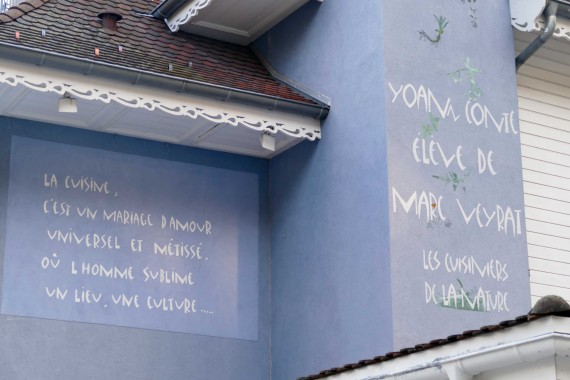 LA CUISINE,
C'EST UN MARIAGE D'AMOUR
UNIVERSEL ET MÉTISSÉ.
OÙ L'HOMME SUBLIME
UN LIEU, UNE CULTURE.....
YOANN CONTE
ÉLÈVE DE
MARC VEYRAT
LES CUISINIERS
DE LA NATURE